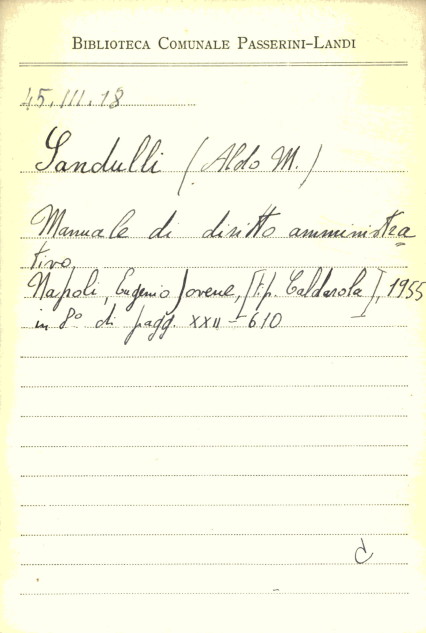 BIBLIOTECA COMUNALE PASSERINI-LANDI
45.III.18
Sandulli (Aldo M.)
Manuale di diritto amministra
tivo
Napoli, Eugenio Jovene, [Tip. Caldarola], 1955
in 8° di pagg. XXII-610